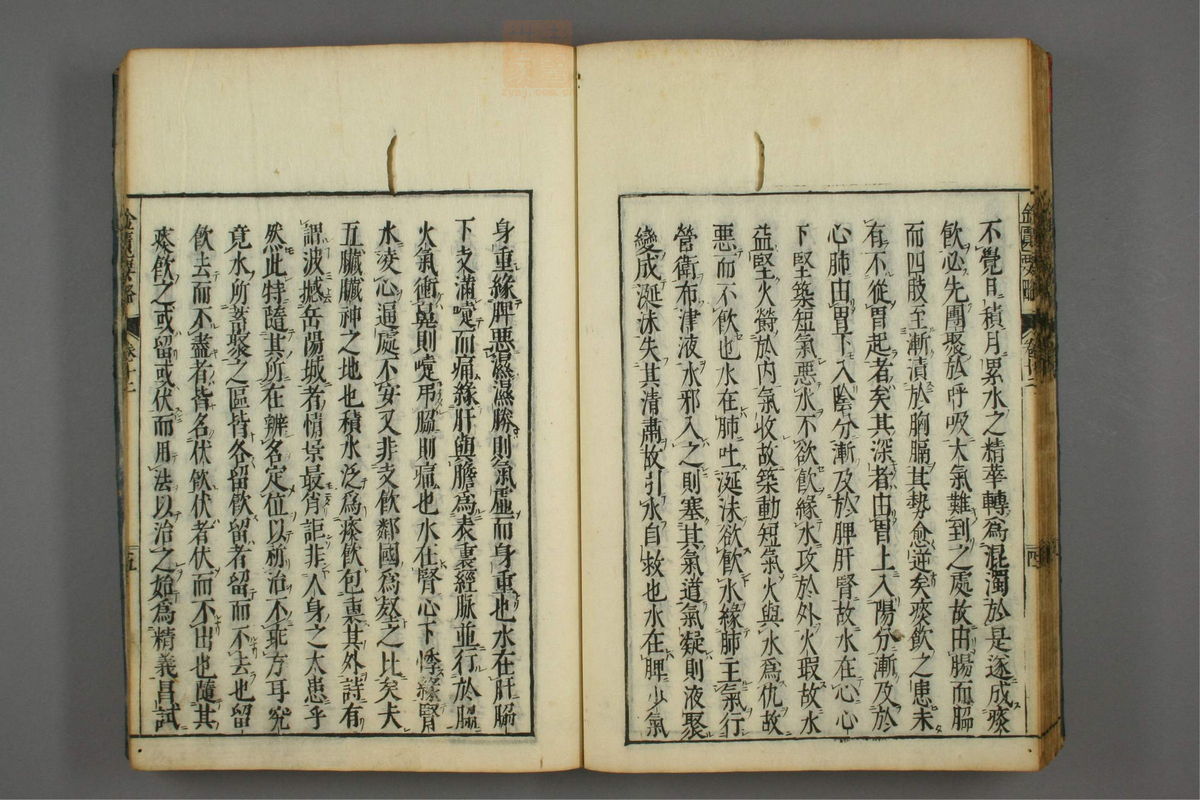 不覺日積月累水之精華轉爲混濁於是遂成痰
飲必先團聚於呼吸大氣難到之處故由腸而脇
而四肢至漸漬於胸膈其勢愈逆矣痰飲之患未
有不從胃起者矣其深者由胃上入陽分漸及於
心肺由胃下入陰分漸及於脾肝腎故水在心心
下堅築短氣惡水不欲飲緣水攻於外火瑕故水
益堅火鬱於内氣收故築動短氣火與水爲仇故
惡而不飲也水在肺吐涎沫欲飲水緣肺主氣行
營衛布津液水邪入之則塞其氣道氣凝則液聚
變成涎沫失其清肅故引水自救也水在脾少氣
身重緣脾惡濕濕勝則氣虛而身重也水在肝脇
下支滿嚏而痛緣肝與膽爲表裏經脈並行於脇
火氣衝鼻則嚏吊脇則痛也水在腎心下悸緣腎
水凌心逼處不安又非支飲鄰國爲壑之比矣夫
五臟臟神之地也積水泛爲痰飲包裹其外詩有
謂波撼岳陽城者情景最肖詎非人身之大患乎
然此特隨其所在辨名定位以祈治不乖方耳究
竟水所蓄聚之區皆名留飲留者留而不去也留
飲去而不盡者皆名伏飲伏者伏而不出也隨其
痰飲之或留或伏而用法以治之始爲精義昌試
金匱要略
卷十二
四
五